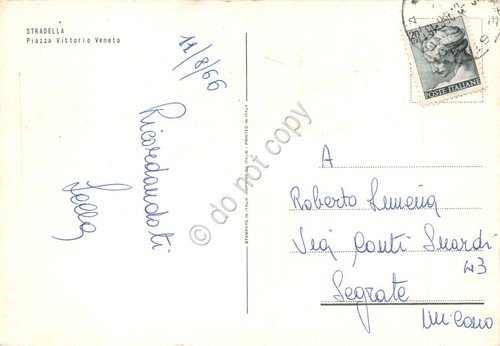 STRADELLA
Piazza Vittorio Veneto
11/8/66
Ricordandoti
STAMPATO IN ITALIA - PRINTED IN ITALY
POSTE ITALIANE
A
Roberto
Via Conti Suardi
43
Segrate
Milano
do not copy